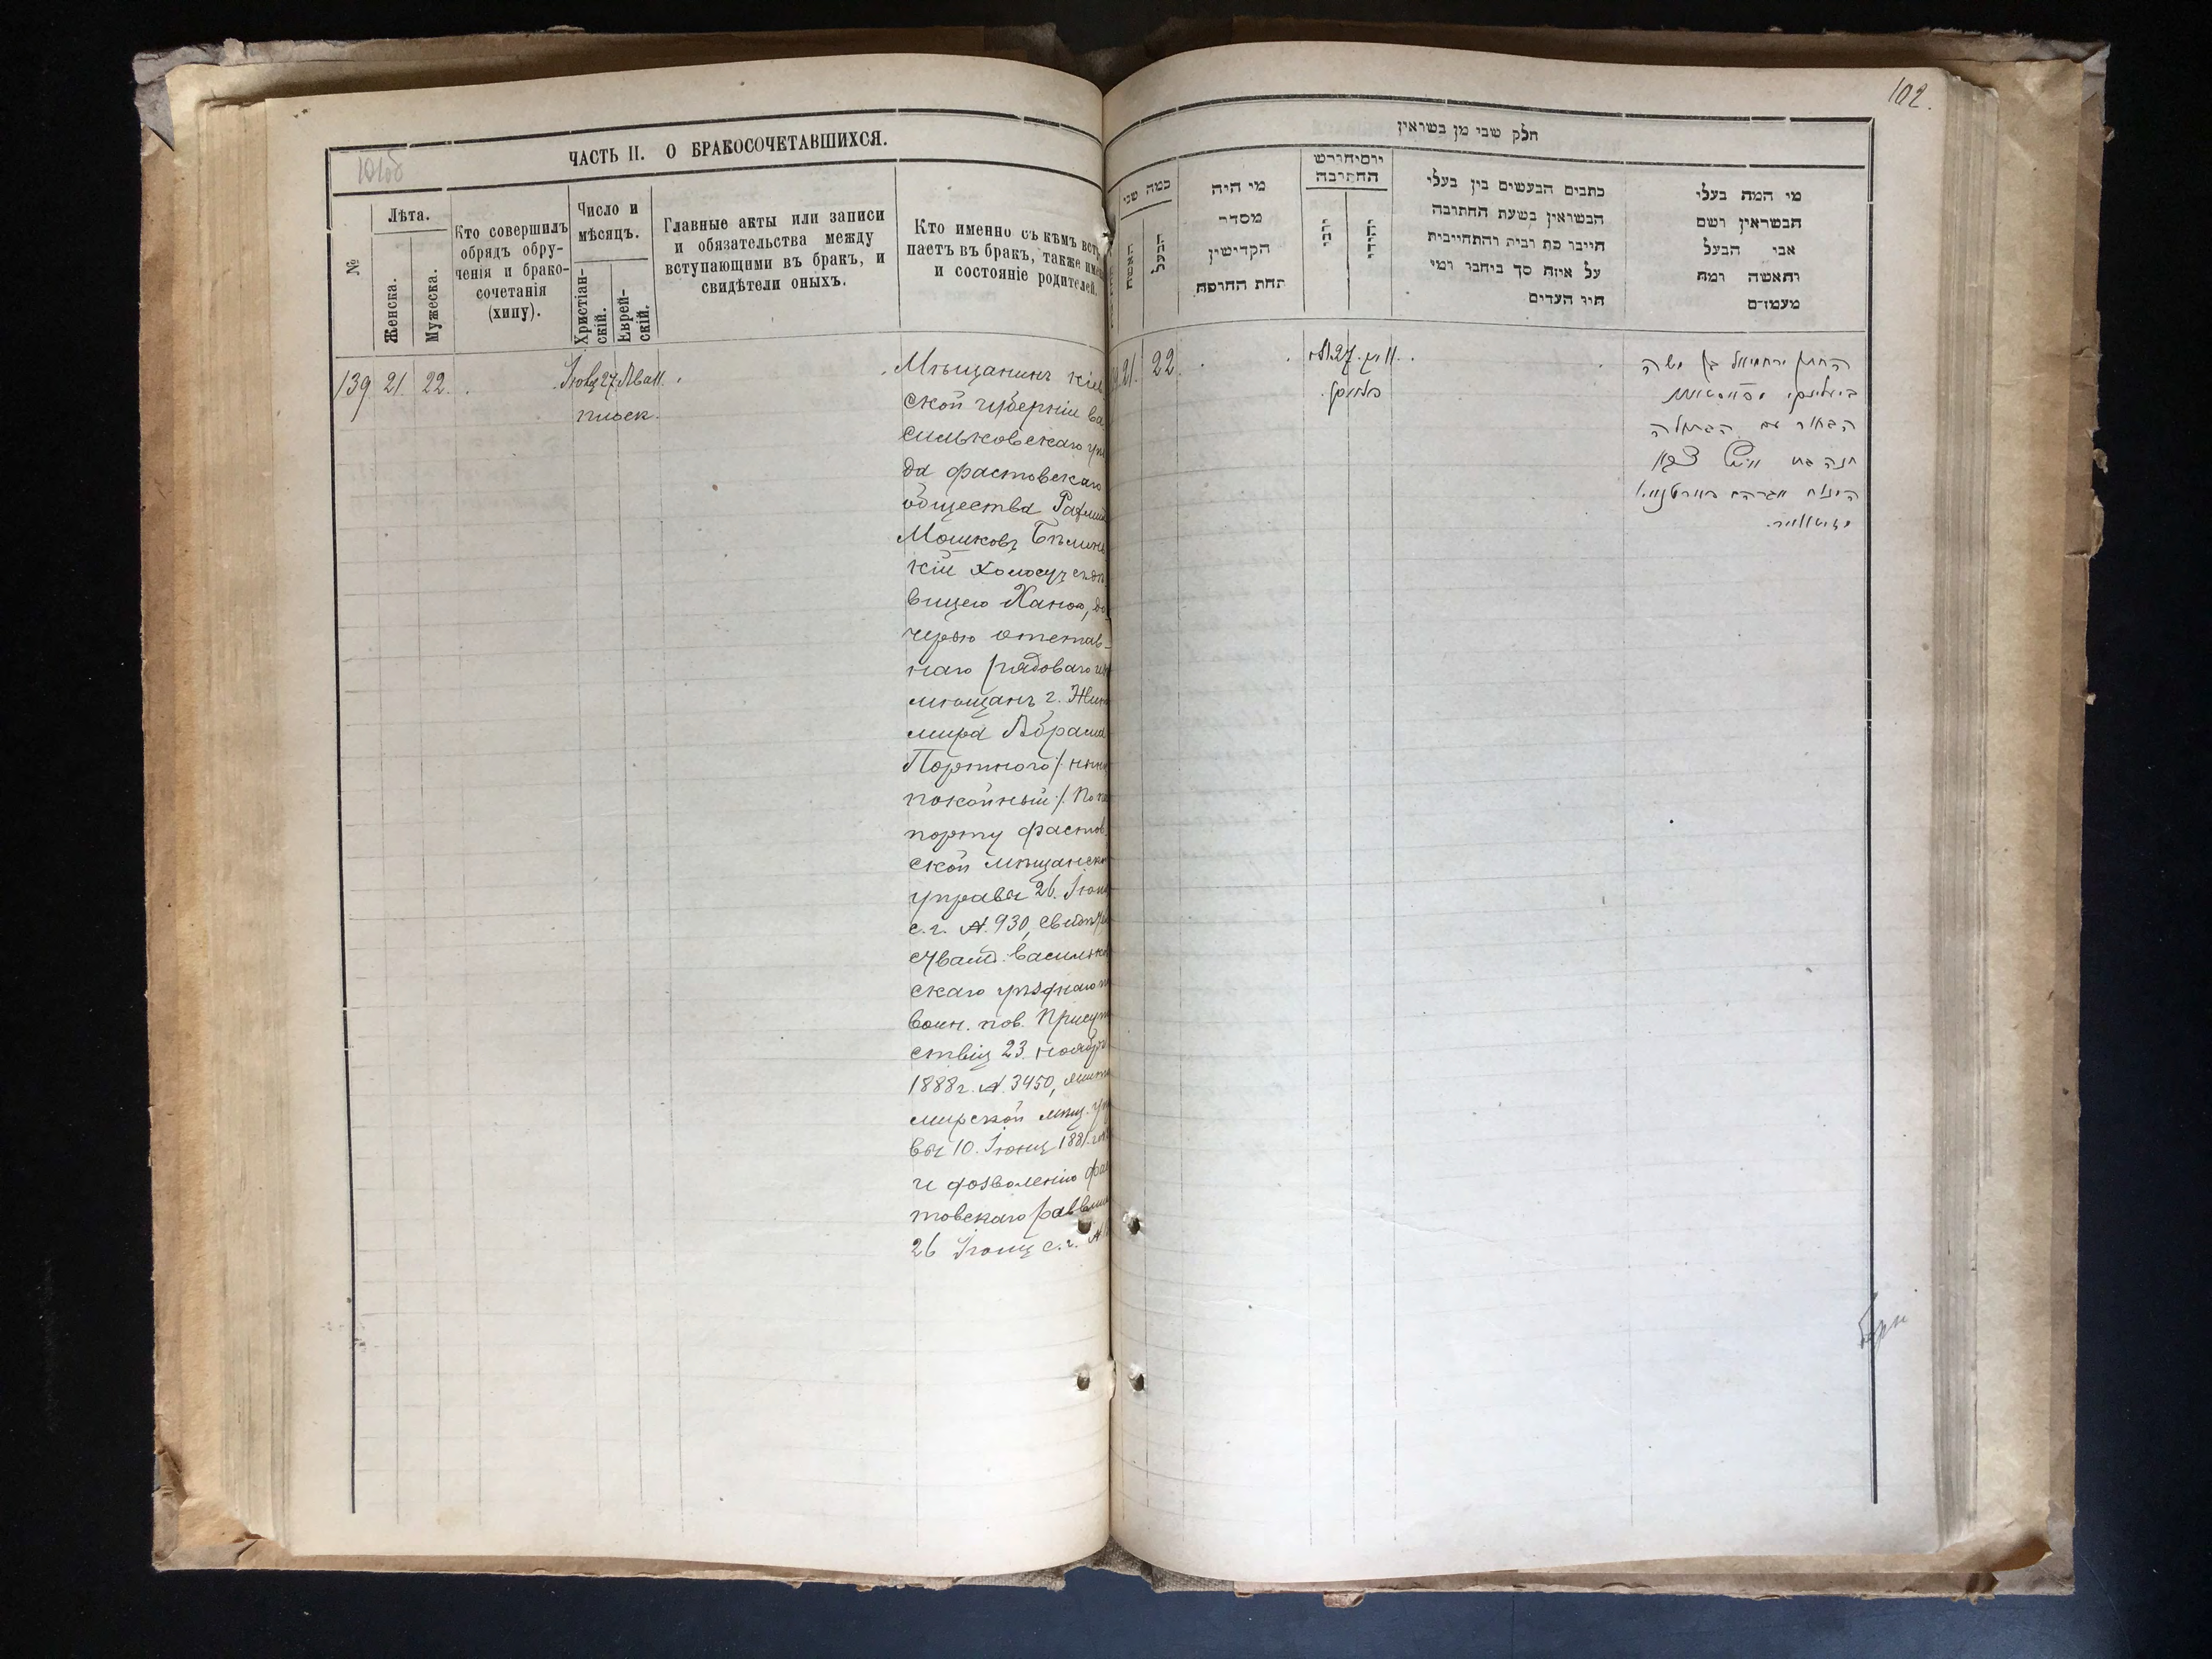 101об
ЧАСТЬ II. О БРАКОСОЧЕТАВШИХСЯ.
№
Лѣта.
Женска.
Мужеска.
Кто совершилъ
обрядъ обру-
ченія и брако-
сочетанія
(хипу).
Число и
мѣсяцъ.
Христіан-
скій.
Еврей-
скій.
Главные акты или записи
и обязательства между
вступающими въ бракъ, и
свидѣтели оныхъ.
Кто именно съ кѣмъ всту
паетъ въ бракъ, также име
и состояніе родителей.
139 21. 22. Іюня 27 Ава 11.
Мѣщанинъ Кіев
ской губерніи Ва
сильковскаго уѣз
да фастовскаго
общества
Мошковъ
кій холосъ съ дѣ
вицею Ханою, до
черью отстав-
наго рядоваго изъ
мѣщанъ г. Жито
мира Абрама
Портного /: нынѣ
покойный :/ По пас
порту фастов
ской мѣщанской
управы 26. Іюня
с.г. №. 930, свидѣт
Васильков
скаго уѣзднаго по
воин. пов. Присут
ствія 23. ноября
1888 г. №. 3450, Жито
мирской мѣщ. упра
вы 10. Іюня 1881.
и дозволенію фас
товскаго раввина
26 Іюня с.г. №
102.
חלק שני מן נשואין
כמה שני
האשה
הבעל
מי היה
מסדר
הקדישין
תחת החופה
יום וחודש
החתונה
נוצרי
יהודי
כתבים הנעשים בין בעלי
הנשואין בשעת החתונה
חייבו כת ובית והתחייבית
על איזה סך ביחבו ומי
חיו העדים
מי המה בעלי
הנשואין ושם
אבי הבעל
והאשה ומה
מעמדם
21. 22. 27. 11.
החתן ירחמיאל בן משה
הבחור עם הבתולה
חנה בת